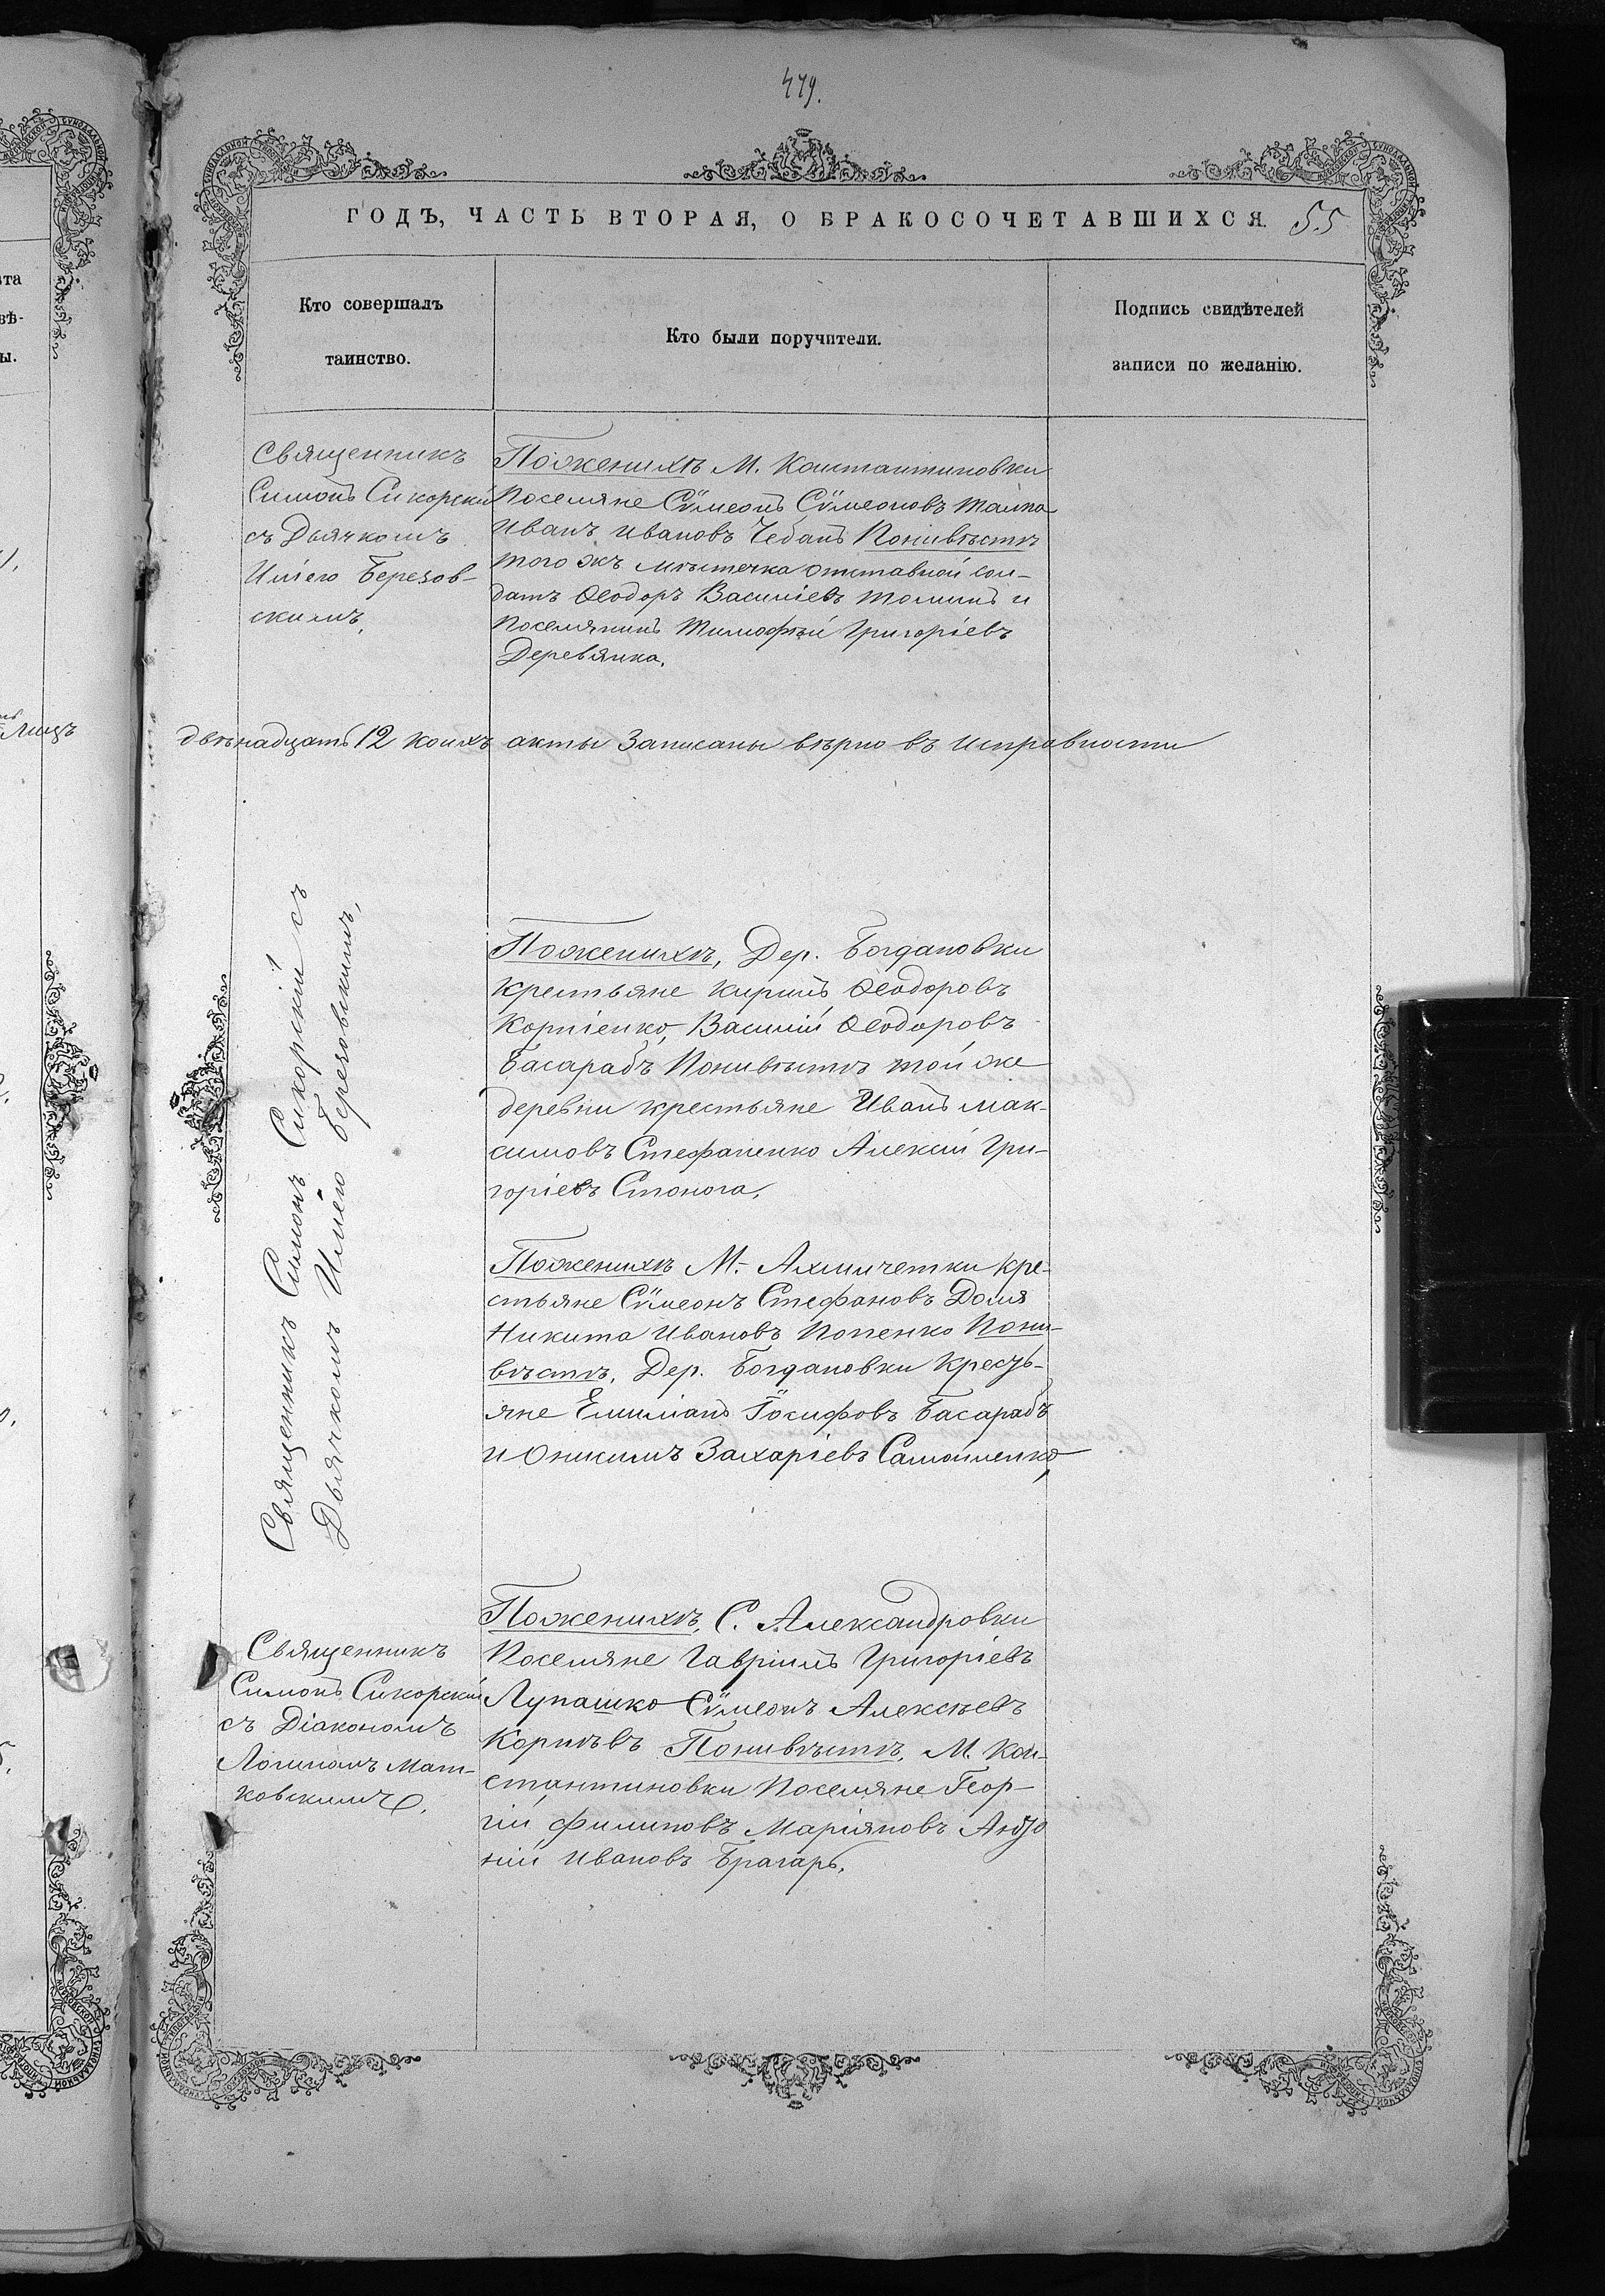 479.
ГОДЪ, ЧАСТЬ ВТОРАЯ, О БРАКОСОЧЕТАВШИХСЯ. 55
Кто совершалъ
таинство.
Кто были поручители.
Подпись свидѣтелей
записи по желанію.
Священникъ
Симонъ Сикорскій
съ Дьячкомъ
Иліею Березов-
скимъ,
По женихѣ М. Константиновки
Поселяне Сѵмеонъ Сѵмеоновъ
Иванъ Ивановъ Чебанъ По невѣстѣ
того жъ мѣстечка отставной сол-
датъ Ѳеодоръ Василіевъ Томинъ и
Поселянинъ Тимофѣй Григоріевъ
Деревянка.
двѣнадцать 12 коихъ акты Записаны вѣрно въ исправности
Священникъ Симонъ Сикорскій съ
Дьячкомъ Иліею Березовскимъ,
По женихѣ, Дер. Богдановки
крестьяне Кирилъ Ѳеодоровъ
Корніенко, Василій Ѳеодоровъ
Басарабъ По невѣстѣ той же
деревни крестьяне Иванъ Мак-
симовъ Стефаненко Алексій Гри-
горіевъ Стонога,
По женихѣ М. Ахмичетки кре-
стьяне Сѵмеонъ Стефановъ Доля
Никита Ивановъ Попенко По не-
вѣстѣ, Дер. Богдановки Кресть-
яне Емиліанъ Іосифовъ Басарабъ
и Онисимъ Захаріевъ Самойленко,
Священникъ
Симонъ Сикорскій
съ Діакономъ
Логиномъ Мат-
ковскимъ.
По женихѣ, С. Александровки
Поселяне Гавріилъ Григоріевъ
Лупашко Сѵмеонъ Алексѣевъ
Корнѣвъ По невѣстѣ, М. Кон-
стантиновки Поселяне Геор-
гій Филиповъ Маріяновъ Анто
ній Ивановъ Брагарь.